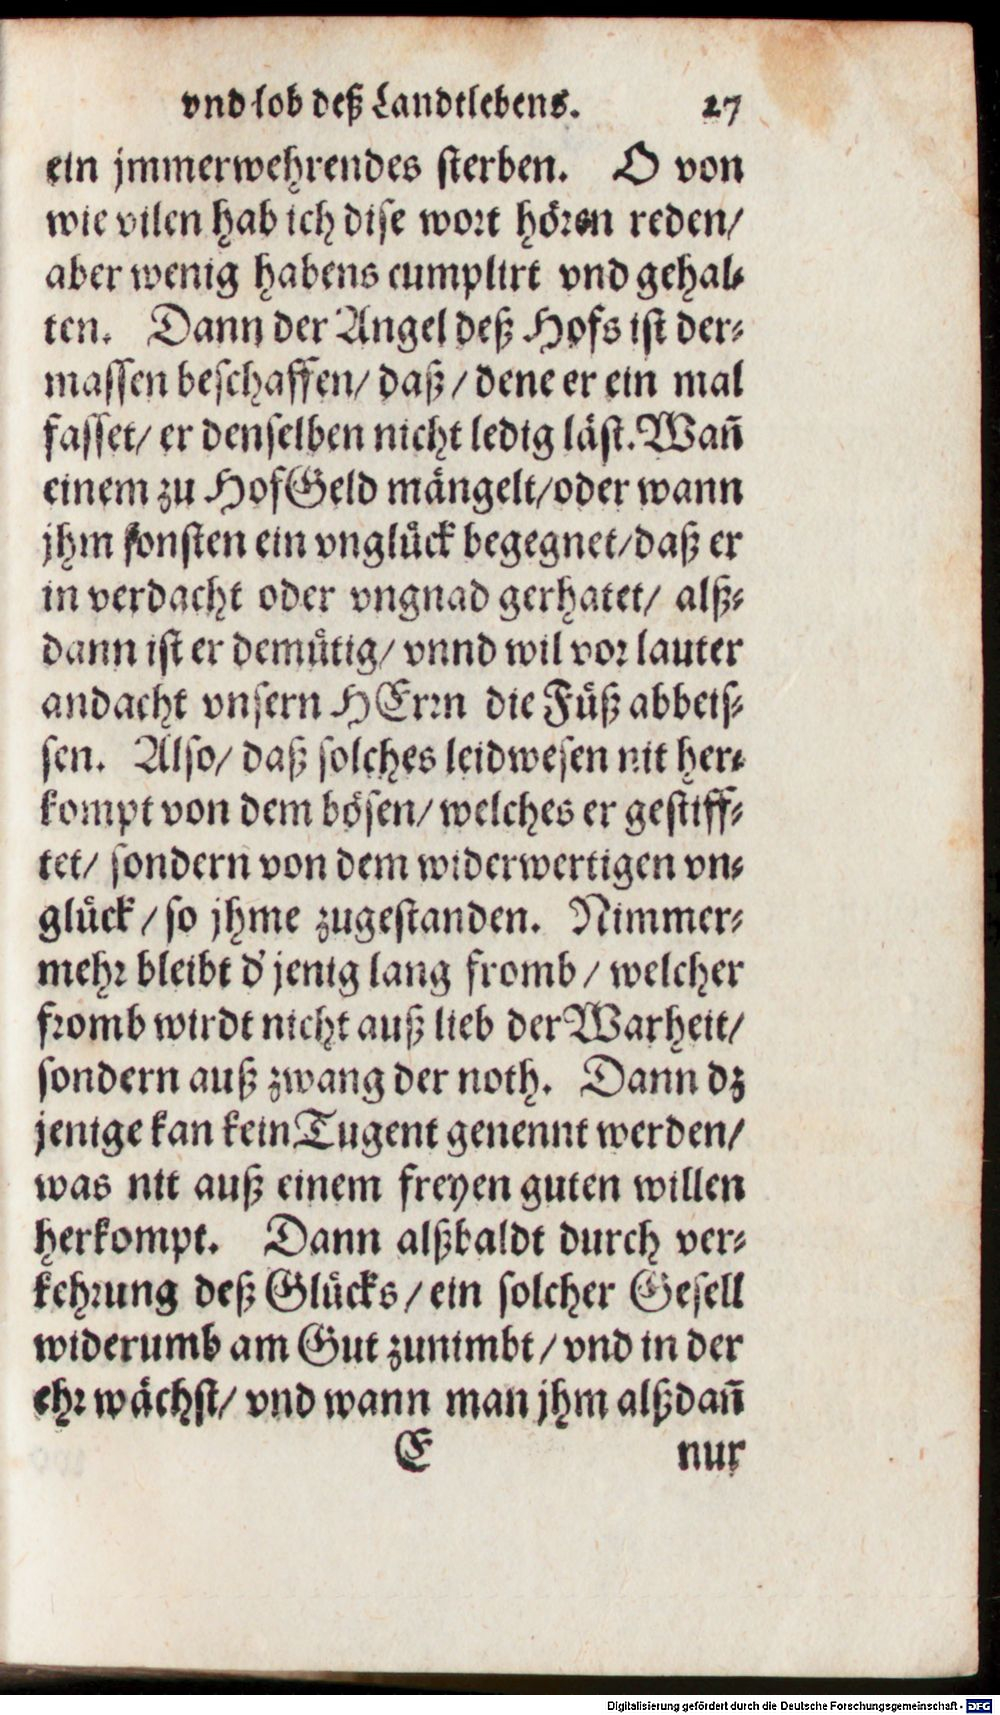 vnd lob deß Landtlebens. 27
ein jmmerwehrendes sterben. O von
wie vilen hab ich dise wort hören reden/
aber wenig habens cumplirt vnd gehal-
ten. Dann der Angel deß Hofs ist der-
massen beschaffen/ daß / dene er ein mal
fasset/ er denselben nicht ledig läst. Wañ
einem zu Hof Geld mängelt/oder wann
jhm sonsten ein vnglück begegnet/daß er
in verdacht oder vngnad gerhatet/ alß-
dann ist er demütig/ vnnd wil vor lauter
andacht vnsern HErrn die Füß abbeis-
sen. Also/ daß solches leidwesen nit her-
kompt von dem bösen/ welches er gestiff-
tet/ sondern von dem widerwertigen vn-
glück / so jhme zugestanden. Nimmer-
mehr bleibt d' jenig lang fromb / welcher
fromb wirdt nicht auß lieb der Warheit/
sondern auß zwang der noth. Dann dz
jenige kan kein Tugent genennt werden/
was nit auß einem freyen guten willen
herkompt. Dann alßbaldt durch ver-
kehrung deß Glücks / ein solcher Gesell
widerumb am Gut zunimbt / vnd in der
ehr wächst/ vnd wann man jhm alßdañ
E nur
Digitalisierung gefördert durch die Deutsche Forschungsgemeinschaft - DFG